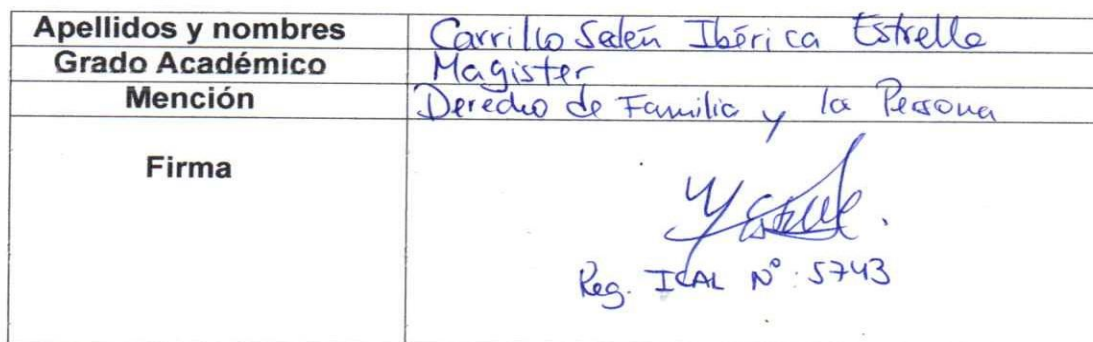 Apellidos y nombres Carrillo Salen Ibérica Estrella
Grado Académico Magister
Mención Derecho de Familia y la Persona
Firma
Reg. ICAL N°: 5743